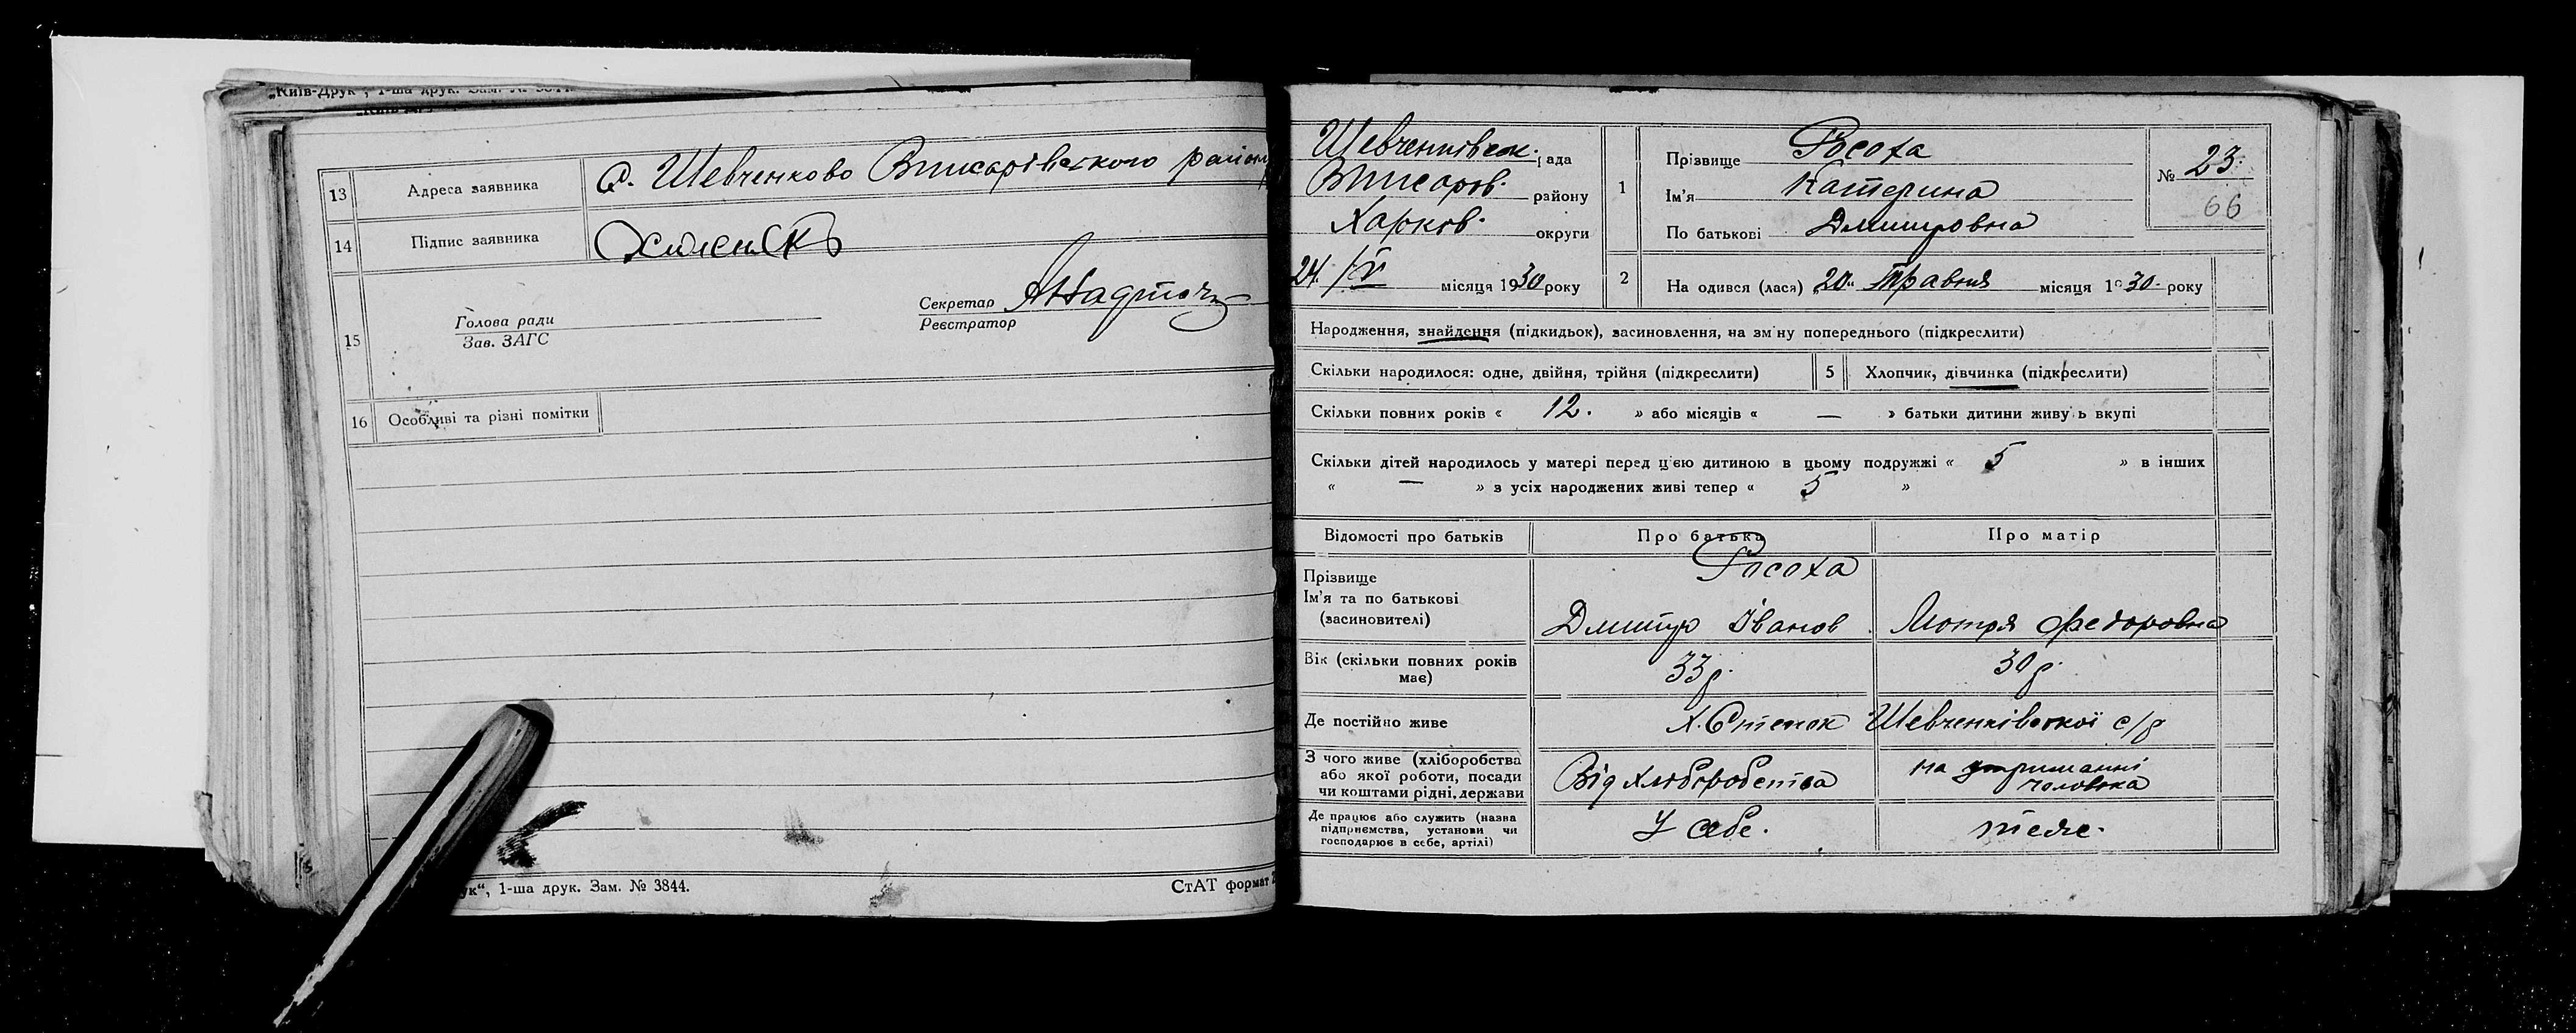 „Київ-Друк", 1-ша друк. Зам. №
13 Адреса заявника с. Шевченково Вписарівського району
14 Підпис заявника
15 Голова ради
Зав. ЗАГС
Секретар
Реєстратор
16 Особливі та різні помітки
ук", 1-ша друк. Зам. № 3844.
СтАТ формат
Шевченківськ. рада
району
Харков. округи
24/V місяця 1930 року
1 Прізвище Росоха
Ім'я Катерина
По батькові Дмитровна
№ 23.
66
2 На одився (лася) „20" Травня місяця 1930 року
Народження, знайдення (підкидьок), засиновлення, на зм ну попереднього (підкреслити)
Скільки народилося: одне, двійня, трійня (підкреслити) 5 Хлопчик, дівчинка (підкреслити)
Скільки повних років « 12. » або місяців « — » батьки дитини живуть вкупі
Скільки дітей народилось у матері перед цією дитиною в цьому подружжі « 5 » в інших
« — » з усіх народжених живі тепер « 5 »
Відомості про батьків Про батька Про матір
Прізвище
Ім'я та по батькові
(засиновителі)
Росоха
Дмитро Іванов. Мотря Федоровна
Вік (скільки повних років
має)
33 р. 30 р.
Де постійно живе Х. Степок Шевченківської с/р
З чого живе (хліборобства
або якої роботи, посади
чи коштами рідні, держави
Від хліборобства на утриманні
чоловіка
Де працює або служить (назва
підприємства, установи чи
господарює в себе, артілі)
У себе. теже.